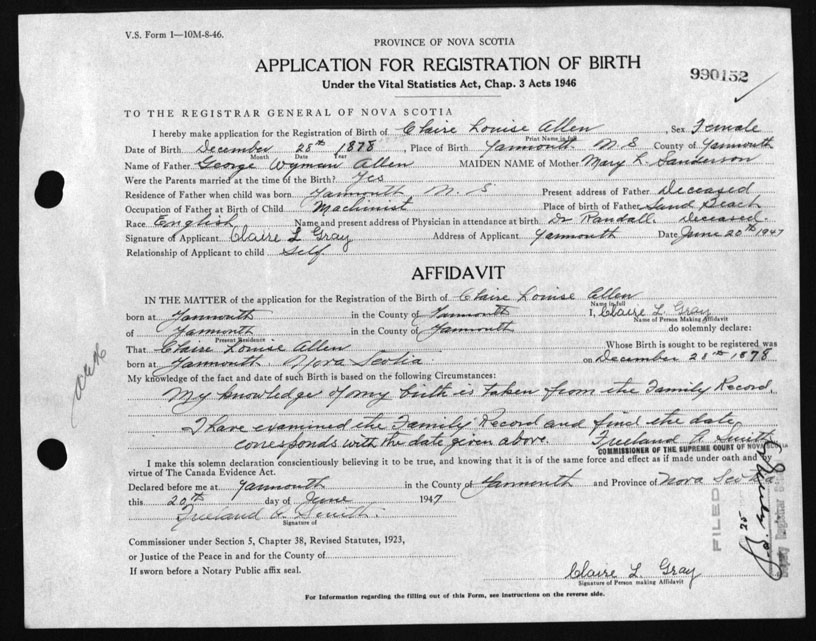 V.S. Form 1—10M-8-46.
PROVINCE OF NOVA SCOTIA
APPLICATION FOR REGISTRATION OF BIRTH
990152
Under the Vital Statistics Act, Chap. 3 Acts 1946
TO THE REGISTRAR GENERAL OF NOVA SCOTIA
I hereby make application for the Registration of Birth of Claire Louise Allen, Sex Female
Print Name in full
Date of Birth December 28th 1878, Place of Birth Yarmouth N.S County of Yarmouth
Month Date Year
Name of Father George Wyman Allen MAIDEN NAME of Mother Mary L. Sanderson
Were the Parents married at the time of the Birth? Yes
Residence of Father when child was born Yarmouth N. S Present address of Father Deceased
Occupation of Father at Birth of Child Machinist Place of birth of Father Sand Beach
Race English Name and present address of Physician in attendance at birth Dr Randall. Deceased.
Signature of Applicant Claire L Gray Address of Applicant Yarmouth Date June 20th 1947
Relationship of Applicant to child Self
AFFIDAVIT
IN THE MATTER of the application for the Registration of the Birth of Claire Louise Allen
Name in full
born at Yarmouth in the County of Yarmouth I, Claire L. Gray
Name of Person Making Affidavit
of Yarmouth in the County of Yarmouth do solemnly declare:
Present Residence
That Claire Louise Allen Whose Birth is sought to be registered was
born at Yarmouth. Nova Scotia on December 28th 1878
My knowledge of the fact and date of such Birth is based on the following Circumstances:
My knowledge of my birth is taken from the Family Record.
I have examined the Family Record and find the date
corresponds with the date given above. Freeland A. Smith
COMMISSIONER OF THE SUPREME COURT OF NOVA SCOTIA
I make this solemn declaration conscientiously believing it to be true, and knowing that it is of the same force and effect as if made under oath and
virtue of The Canada Evidence Act.
Declared before me at Yarmouth in the County of Yarmouth and Province of Nova Scotia
this 20th day of June 1947
Freeland A. Smith.
Signature of
Commissioner under Section 5, Chapter 38, Revised Statutes, 1923,
or Justice of the Peace in and for the County of
If sworn before a Notary Public affix seal.
FILED
25
Deputy Registrar
Claire L. Gray
Signature of Person making Affidavit
For Information regarding the filling out of this Form, see instructions on the reverse side.